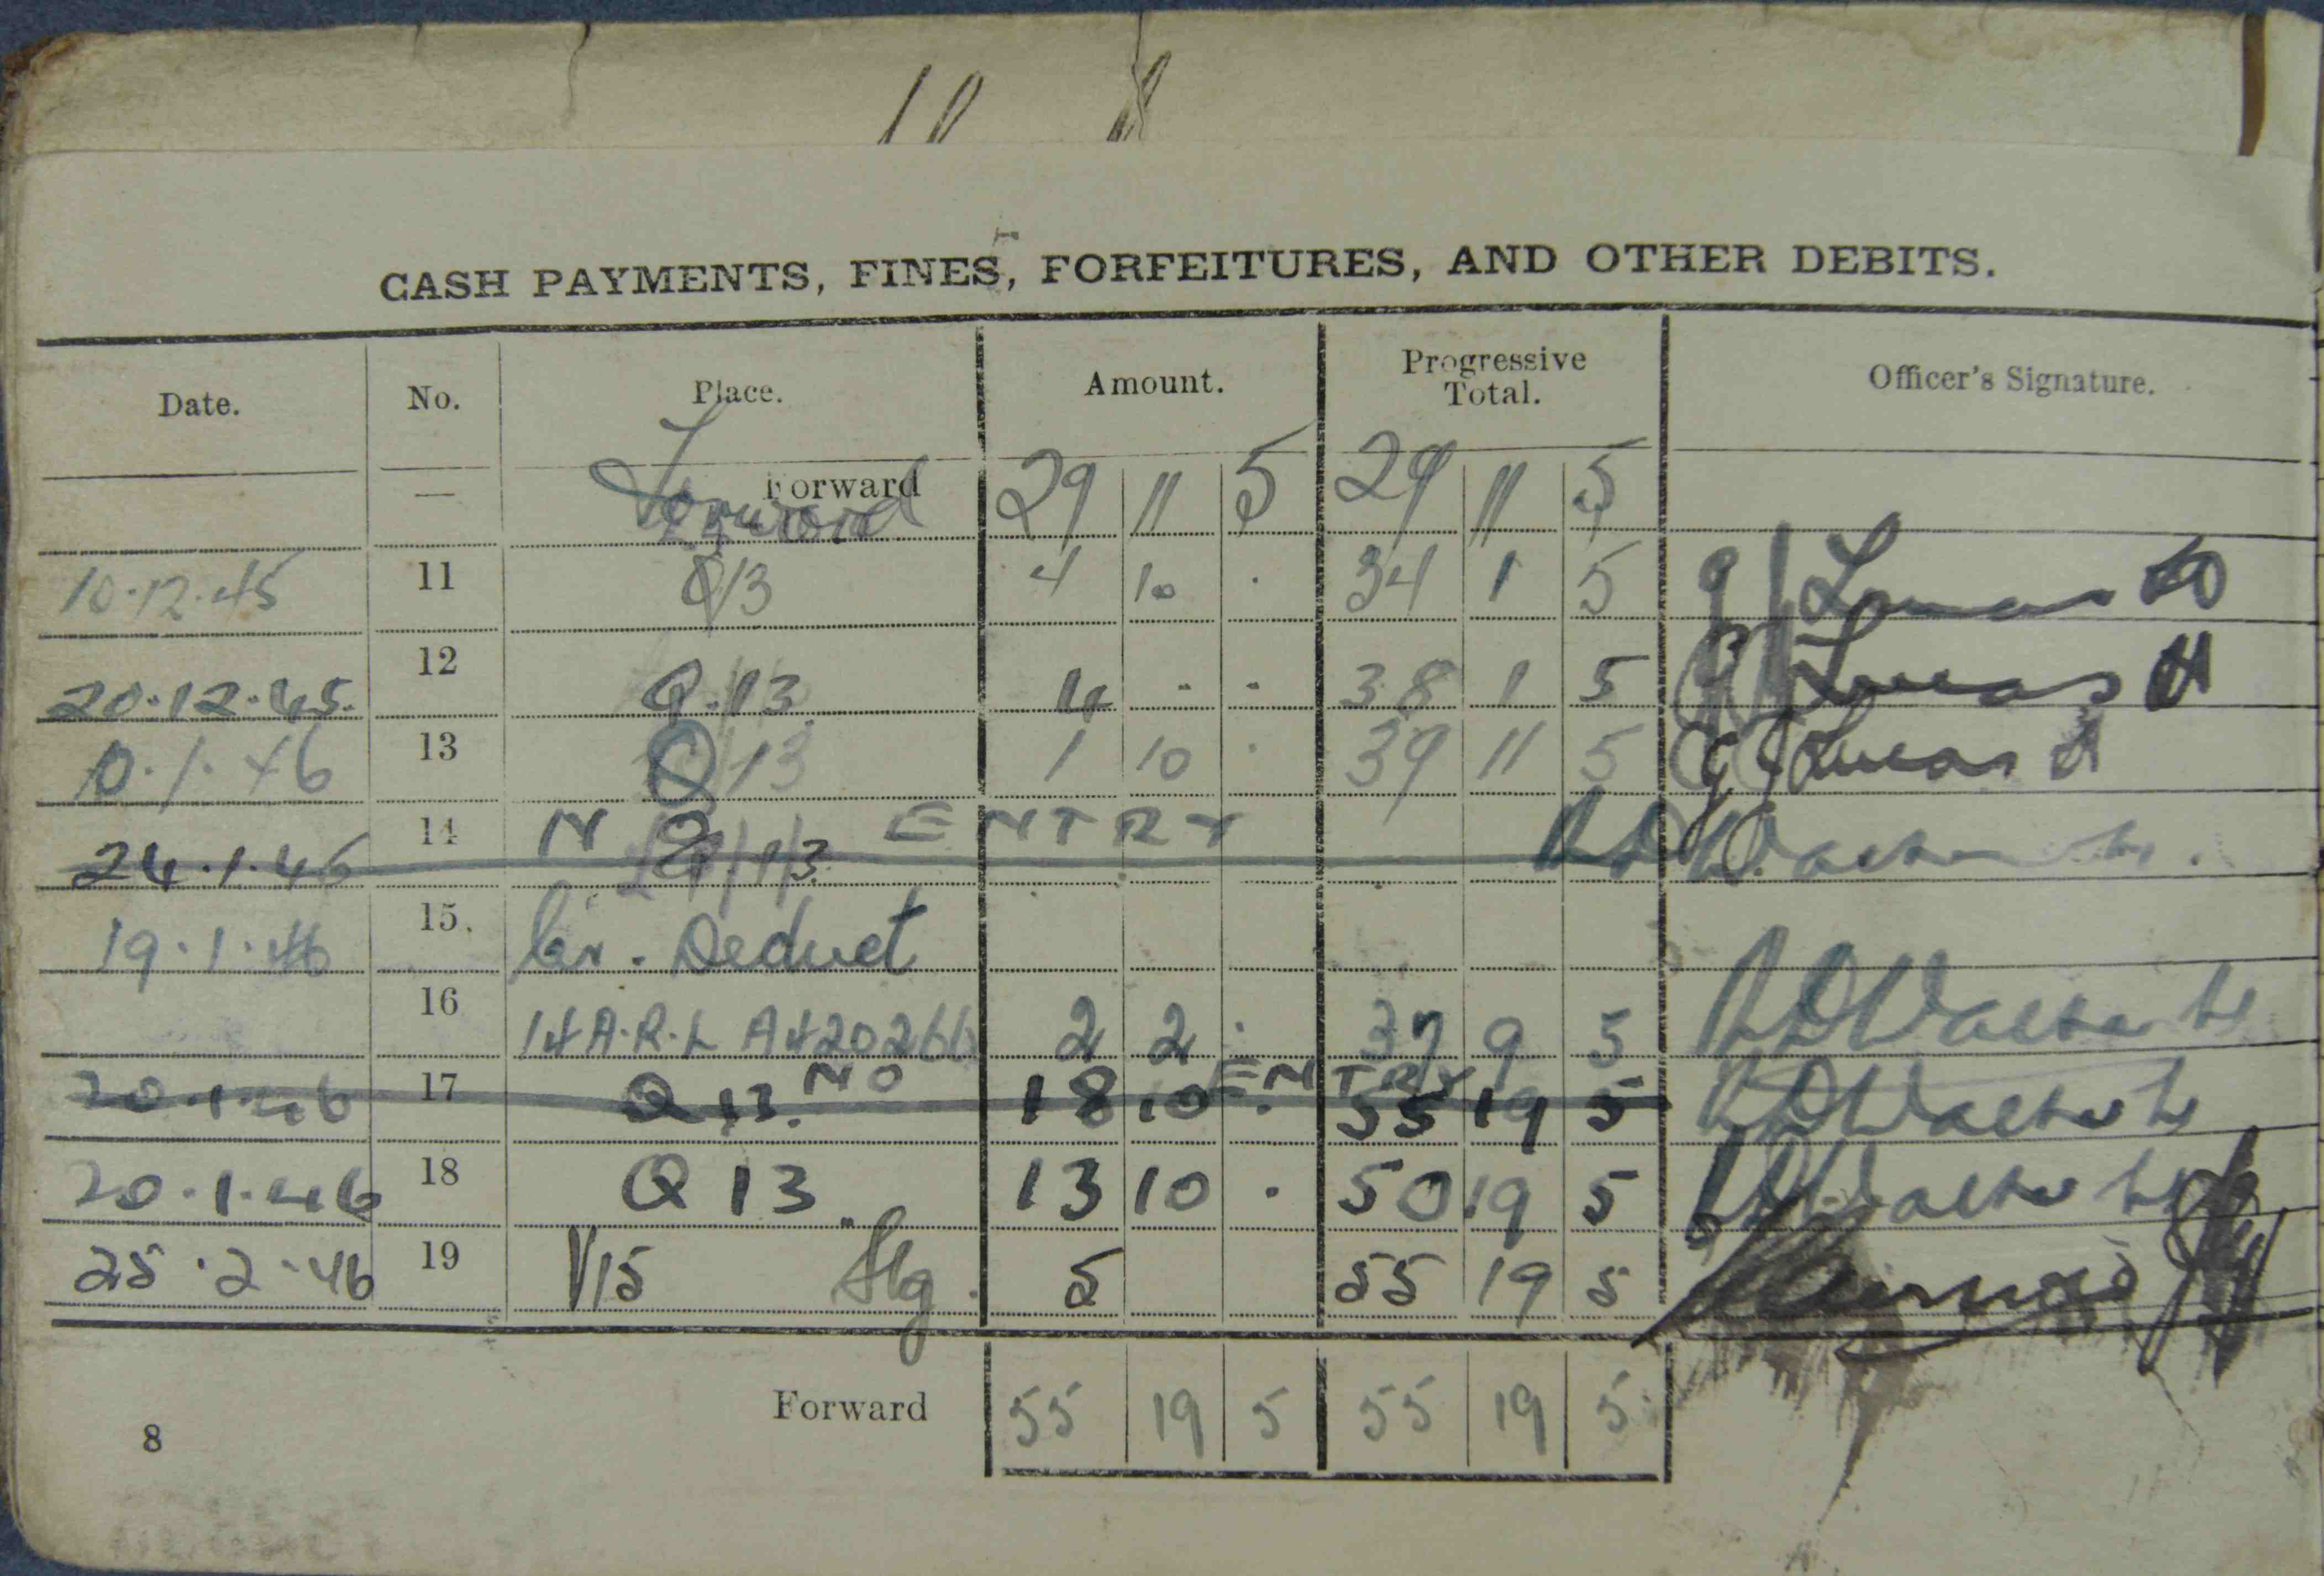 10
CASH PAYMENTS, FINES, FORFEITURES, AND OTHER DEBITS.
Date. No. Place. Amount. Progressive Total. Officer's Signature.
— Forward Forward 29 11 5 29 11 5
10.12.45 11 Q13 4 10 . 34 1 5 G J Lucas Lt
20.12.45. 12 Q.13. 4 . . 38 1 5 G J Lucas Lt
10.1.46 13 Q13 1 10 . 39 11 5 G J Lucas Lt
24.1.46 14 N Q/13. ENTRY R D Walker Lt.
19.1.46 15. Cr. Deduct
16 14 A.R.L A420266 2 2 . 37 9 5 R D Walker Lt
20.1.46 17 Q 13. NO ENTRY 18 10 . 55 19 5 R D Walker Lt
20.1.46 18 Q 13 13 10 . 50 19 5 R D Walker Lt
25.2.46 19 V15 Stg. 5 55 19 5
Forward 55 19 5 55 19 5
8